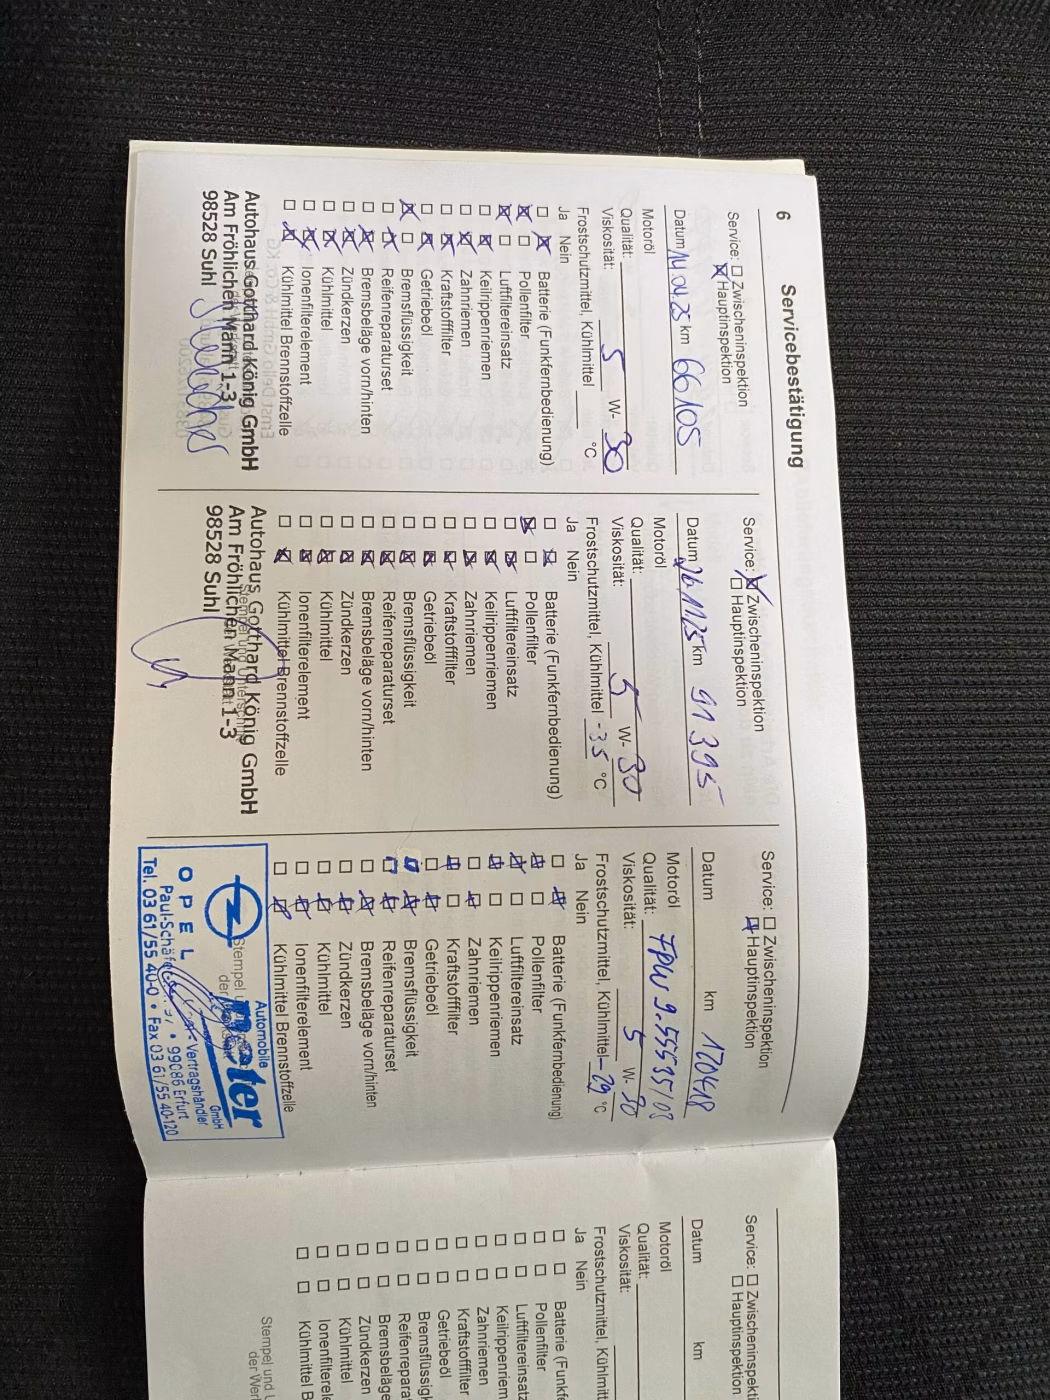 6
Servicebestätigung
Service: Zwischeninspektion
Hauptinspektion
Datum 14.04.25 km 66105
Motoröl
Qualität:
Viskosität: 5 W- 30
Frostschutzmittel, Kühlmittel °C
Ja Nein
Batterie (Funkfernbedienung)
Pollenfilter
Luftfiltereinsatz
Keilrippenriemen
Zahnriemen
Kraftstofffilter
Getriebeöl
Bremsflüssigkeit
Reifenreparaturset
Bremsbeläge vorn/hinten
Zündkerzen
Kühlmittel
Ionenfilterelement
Kühlmittel Brennstoffzelle
Autohaus Gotthard König GmbH
Am Fröhlichen Mann 1-3
98528 Suhl
Service: Zwischeninspektion
Hauptinspektion
Datum km 91395
Motoröl
Qualität:
Viskosität: 5 W- 30
Frostschutzmittel, Kühlmittel -35 °C
Ja Nein
Batterie (Funkfernbedienung)
Pollenfilter
Luftfiltereinsatz
Keilrippenriemen
Zahnriemen
Kraftstofffilter
Getriebeöl
Bremsflüssigkeit
Reifenreparaturset
Bremsbeläge vorn/hinten
Zündkerzen
Kühlmittel
Ionenfilterelement
Kühlmittel Brennstoffzelle
Autohaus Gotthard König GmbH
Am Fröhlichen Mann 1-3
98528 Suhl
Service: Zwischeninspektion
Hauptinspektion
Datum km 120418
Motoröl
Qualität: FPW9.55535/03
Viskosität: 5 W- 30
Frostschutzmittel, Kühlmittel -29 °C
Ja Nein
Batterie (Funkfernbedienung)
Pollenfilter
Luftfiltereinsatz
Keilrippenriemen
Zahnriemen
Kraftstofffilter
Getriebeöl
Bremsflüssigkeit
Reifenreparaturset
Bremsbeläge vorn/hinten
Zündkerzen
Kühlmittel
Ionenfilterelement
Kühlmittel Brennstoffzelle
Automobile
GmbH
OPEL Vertragshändler
99086 Erfurt
Tel. 03 61/55 40-0 • Fax 03 61/55 40-120
Service: Zwischeninspekti
Hauptinspektion
Datum km
Motoröl
Qualität:
Viskosität:
Frostschutzmittel, Kühlmitt
Ja Nein
Batterie (Funkf
Pollenfilter
Luftfiltereinsatz
Keilrippenriem
Zahnriemen
Kraftstofffilter
Getriebeöl
Bremsflüssigk
Reifenrepara
Bremsbeläge
Zündkerzen
Kühlmittel
Ionenfilterel
Kühlmittel B
Stempel und U
der Wer